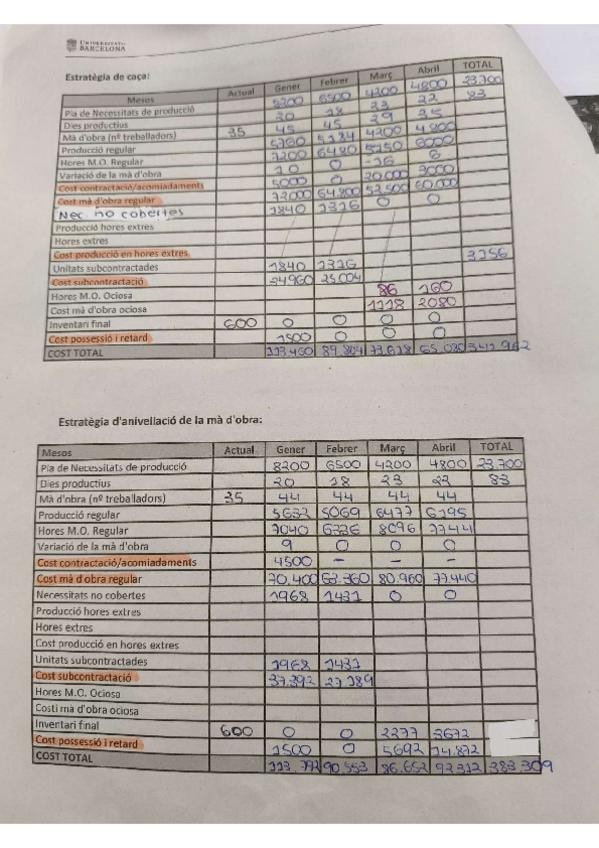 UNIVERSITAT DE
BARCELONA
Estratègia de caça:
Mesos Actual Gener Febrer Març Abril TOTAL
Pla de Necessitats de producció 8200 6500 4200 4800 23.700
Dies productius 20 18 23 22 83
Mà d'obra (nº treballadors) 35 45 45 29 25
Producció regular 5760 5184 4200 4800
Hores M.O. Regular 7200 6480 5250 6000
Variació de la mà d'obra 10 0 -16
Cost contractació/acomiadaments 5000 0 20.000
Cost mà d'obra regular 72000 64.800 52.500 60.000
Nec. no cobertes 1840 1316 0 0
Producció hores extres
Hores extres
Cost producció en hores extres
Unitats subcontractades 1840 1316 3156
Cost subcontractació 34960 25.004
Hores M.O. Ociosa 86 160
Cost mà d'obra ociosa 1118 2080
Inventari final 600 0 0 0 0
Cost possessió i retard 1500 0 0 0
COST TOTAL 113.460 89.804 73.618 65.080 341.962
Estratègia d'anivellació de la mà d'obra:
Mesos Actual Gener Febrer Març Abril TOTAL
Pla de Necessitats de producció 8200 6500 4200 4800 23.700
Dies productius 20 18 23 22 83
Mà d'obra (nº treballadors) 35 44 44 44 44
Producció regular 5632 5069 6477 6195
Hores M.O. Regular 7040 6336 8096 7744
Variació de la mà d'obra 9 0 0 0
Cost contractació/acomiadaments 4500 - - -
Cost mà d'obra regular 70.400 63.360 80.960 77.440
Necessitats no cobertes 1968 1431 0 0
Producció hores extres
Hores extres
Cost producció en hores extres
Unitats subcontractades 1968 1431
Cost subcontractació 37.392 27.189
Hores M.O. Ociosa
Costi mà d'obra ociosa
Inventari final 600 0 0 2277 3672
Cost possessió i retard 1500 0 5692 14.872
COST TOTAL 113.792 90.553 86.652 92.312 383.309